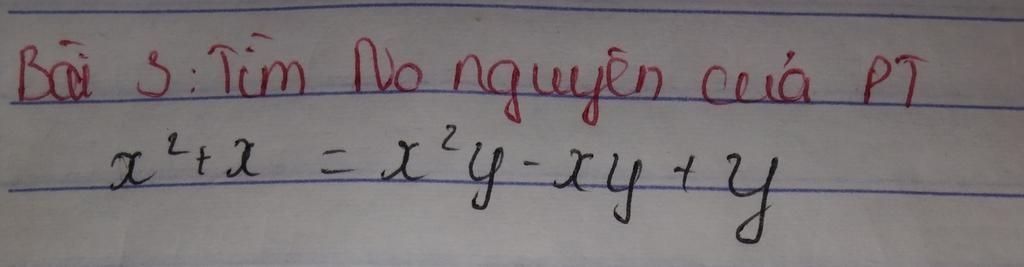 Bài 3: Tìm No nguyên của PT
x² + x = x²y - xy + y